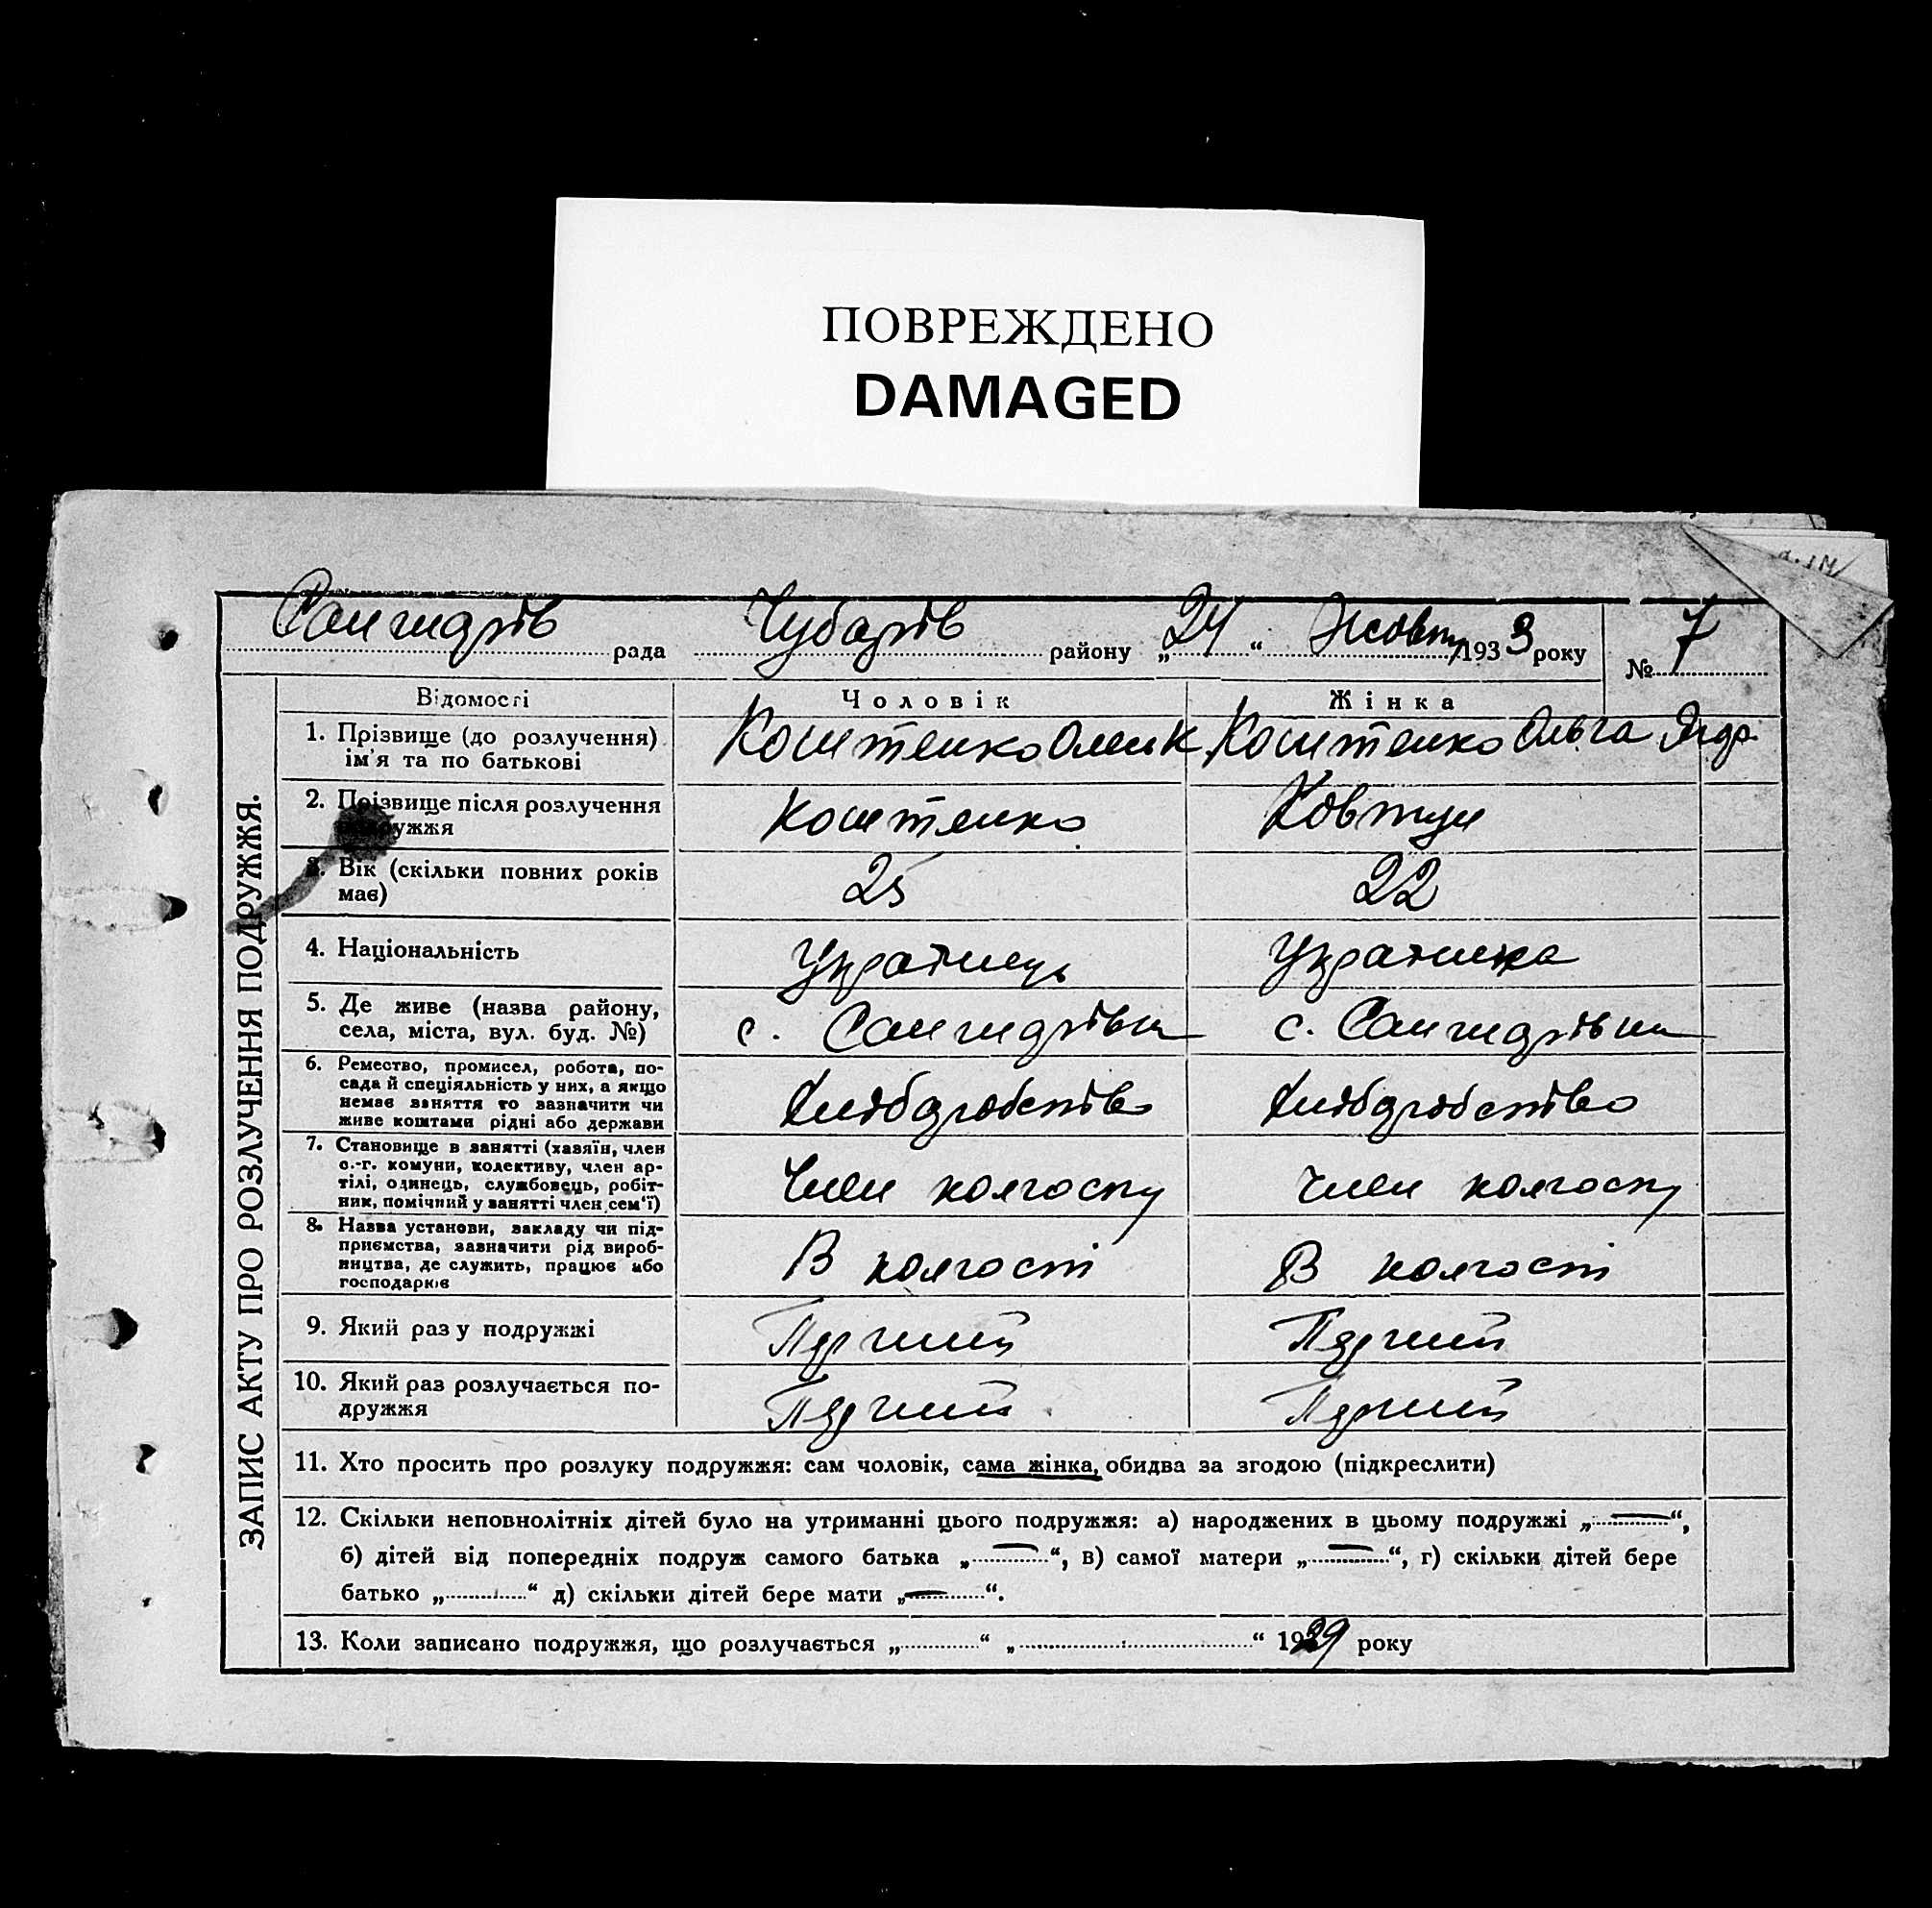 ПОВРЕЖДЕНО
DAMAGED
рада Чубарів району „24“ Жовтн 1933 року № 7
ЗАПИС АКТУ ПРО РОЗЛУЧЕННЯ ПОДРУЖЖЯ.
Відомості Чоловік Жінка
1. Прізвище (до розлучення) ім'я та по батькові Коштенко Коштенко Ольга
2. Прізвище після розлучення подружжя Коштенко Ковтун
3. Вік (скільки повних років має) 25 22
4. Національність Українець Українка
5. Де живе (назва району, села, міста, вул. буд. №) с. с.
6. Ремество, промисел, робота, посада й спеціяльність у них, а якщо немає заняття то зазначити чи живе коштами рідні або держави Хліборобство Хліборобство
7. Становище в занятті (хазяїн, член с.-г. комуни, колективу, член артілі, одинець, службовець, робітник, помічний у занятті член сем'ї) Член колгоспу член колгоспу
8. Назва установи, закладу чи підприємства, зазначити рід виробництва, де служить, працює або господарює В колгоспі В колгоспі
9. Який раз у подружжі Перший Перший
10. Який раз розлучається подружжя Перший Перший
11. Хто просить про розлуку подружжя: сам чоловік, сама жінка, обидва за згодою (підкреслити)
12. Скільки неповнолітніх дітей було на утриманні цього подружжя: а) народжених в цьому подружжі „—“,
б) дітей від попередніх подруж самого батька „—“, в) самої матери „—“, г) скільки дітей бере
батько „.....“ д) скільки дітей бере мати „—“.
13. Коли записано подружжя, що розлучається „.....“ „.....“ 1929 року